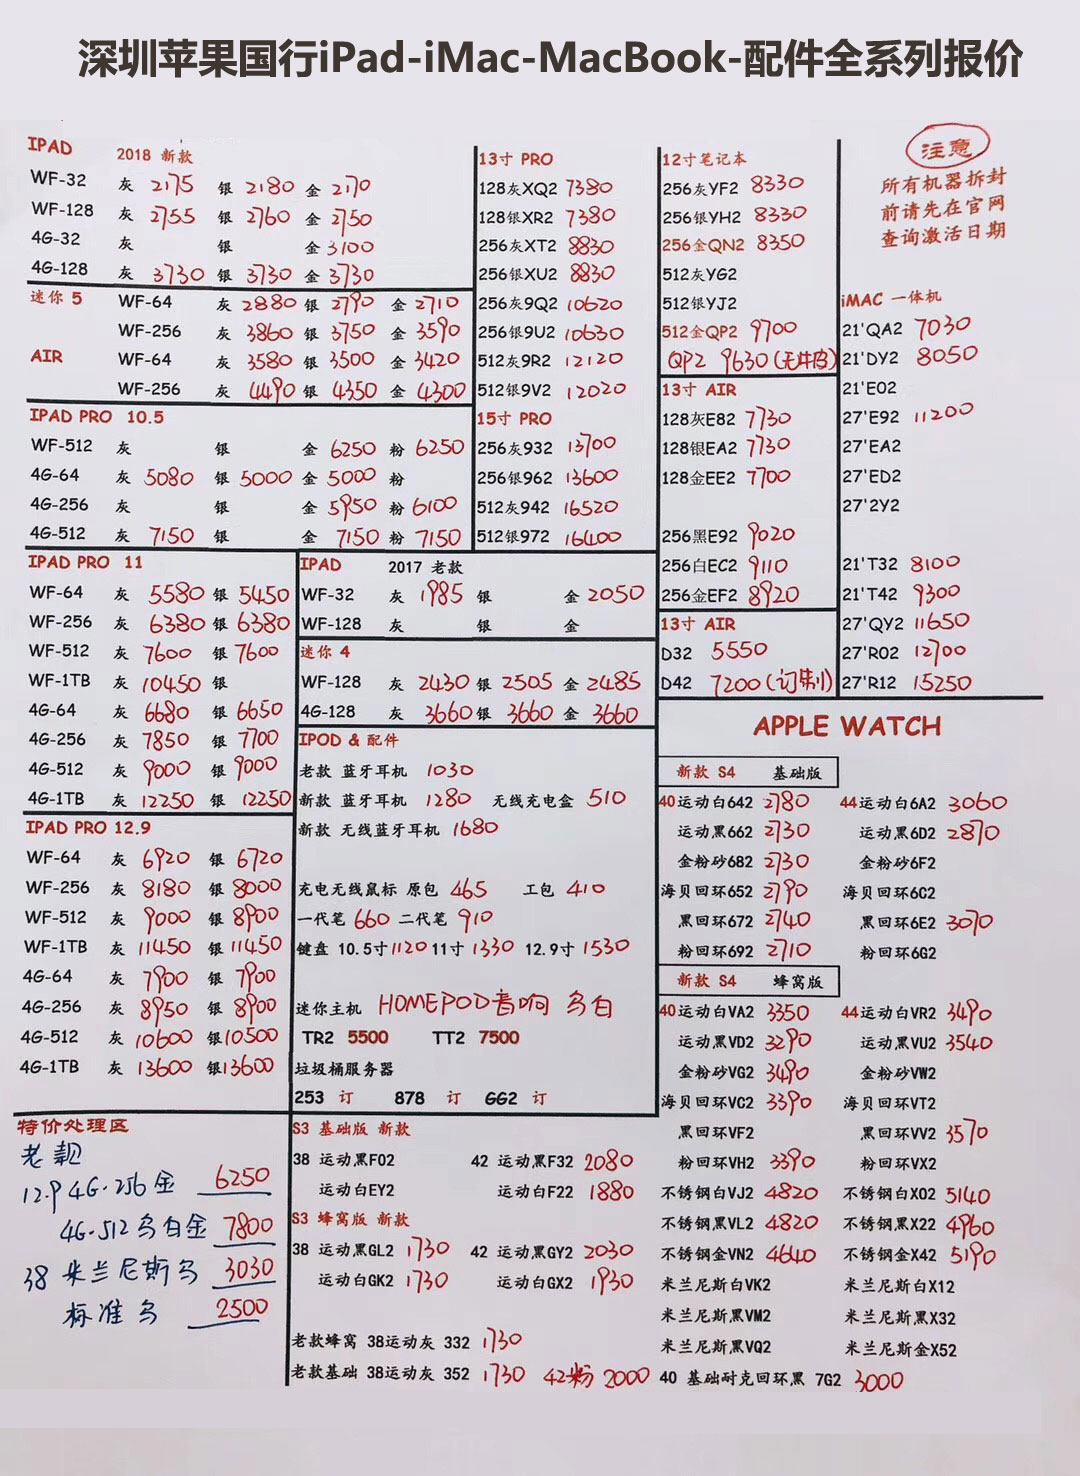 深圳苹果国行iPad-iMac-MacBook-配件全系列报价
IPAD 2018 新款
WF-32 灰 2175 银 2180 金 2170
WF-128 灰 2755 银 2760 金 2750
4G-32 灰 银 金 3100
4G-128 灰 3730 银 3730 金 3730
迷你 5 WF-64 灰 2880 银 2790 金 2710
WF-256 灰 3860 银 3750 金 3590
AIR WF-64 灰 3580 银 3500 金 3420
WF-256 灰 4490 银 4350 金 4300
IPAD PRO 10.5
WF-512 灰 银 金 6250 粉 6250
4G-64 灰 5080 银 5000 金 5000 粉
4G-256 灰 银 金 5950 粉 6100
4G-512 灰 7150 银 金 7150 粉 7150
13寸 PRO
128灰XQ2 7380
128银XR2 7380
256灰XT2 8830
256银XU2 8830
256灰9Q2 10620
256银9U2 10630
512灰9R2 12120
512银9V2 12020
15寸 PRO
256灰932 13700
256银962 13600
512灰942 16520
512银972 16400
12寸笔记本
256灰YF2 8330
256银YH2 8330
256金QN2 8350
512灰YG2
512银YJ2
512金QP2 9700
QP2 9630(无牛皮)
13寸 AIR
128灰E82 7730
128银EA2 7730
128金EE2 7700
256黑E92 9020
256白EC2 9110
256金EF2 8920
13寸 AIR
D32 5550
D42 7200(订制)
注意
所有机器拆封
前请先在官网
查询激活日期
iMAC 一体机
21'QA2 7030
21'DY2 8050
21'E02
27'E92 11200
27'EA2
27'ED2
27'2Y2
21'T32 8100
21'T42 9300
27'QY2 11650
27'R02 12700
27'R12 15250
IPAD PRO 11
WF-64 灰 5580 银 5450
WF-256 灰 6380 银 6380
WF-512 灰 7600 银 7600
WF-1TB 灰 10450 银
4G-64 灰 6680 银 6650
4G-256 灰 7850 银 7700
4G-512 灰 9000 银 9000
4G-1TB 灰 12250 银 12250
IPAD PRO 12.9
WF-64 灰 6920 银 6720
WF-256 灰 8180 银 8000
WF-512 灰 9000 银 8900
WF-1TB 灰 11450 银 11450
4G-64 灰 7900 银 7900
4G-256 灰 8950 银 8900
4G-512 灰 10600 银 10500
4G-1TB 灰 13600 银 13600
IPAD 2017 老款
WF-32 灰 1985 银 金 2050
WF-128 灰 银 金
迷你 4
WF-128 灰 2430 银 2505 金 2485
4G-128 灰 3660 银 3660 金 3660
IPOD & 配件
老款 蓝牙耳机 1030
新款 蓝牙耳机 1280 无线充电盒 510
新款 无线蓝牙耳机 1680
充电无线鼠标 原包 465 工包 410
一代笔 660 二代笔 910
键盘 10.5寸 1120 11寸 1330 12.9寸 1530
迷你主机 HOMEPOD音响 乌白
TR2 5500 TT2 7500
垃圾桶服务器
253 订 878 订 GG2 订
APPLE WATCH
新款 S4 基础版
40运动白642 2780 44运动白6A2 3060
运动黑662 2730 运动黑6D2 2870
金粉砂682 2730 金粉砂6F2
海贝回环652 2790 海贝回环6G2
黑回环672 2740 黑回环6E2 3070
粉回环692 2710 粉回环6G2
新款 S4 蜂窝版
40运动白VA2 3350 44运动白VR2 3490
运动黑VD2 3290 运动黑VU2 3540
金粉砂VG2 3490 金粉砂VW2
海贝回环VC2 3390 海贝回环VT2
黑回环VF2 黑回环VV2 3570
粉回环VH2 3390 粉回环VX2
不锈钢白VJ2 4820 不锈钢白X02 5140
不锈钢黑VL2 4820 不锈钢黑X22 4960
不锈钢金VN2 4640 不锈钢金X42 5190
米兰尼斯白VK2 米兰尼斯白X12
米兰尼斯黑VM2 米兰尼斯黑X32
米兰尼斯黑VQ2 米兰尼斯金X52
40 基础耐克回环黑 7G2 3000
特价处理区
老靓
12.9 4G·256金 6250
4G·512乌白金 7800
38 米兰尼斯乌 3030
标准乌 2500
S3 基础版 新款
38 运动黑F02 42 运动黑F32 2080
运动白EY2 运动白F22 1880
S3 蜂窝版 新款
38 运动黑GL2 1730 42 运动黑GY2 2030
运动白GK2 1730 运动白GX2 1930
老款蜂窝 38运动灰 332 1730
老款基础 38运动灰 352 1730 42粉 2000